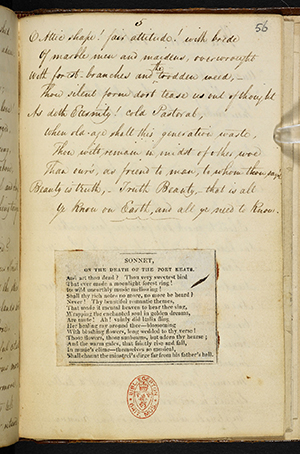 5
56
O Attic shape! fair attitude! with brede
Of marble men and maidens, overwrought
With forest-branches and the trodden weed,—
Thou silent form dost tease us out of thought
As doth Eternity! cold Pastoral,
When old-age shall this generation waste,
Thou wilt remain in midst of other woe
Than ours, as friend to man, to whom thou say'st
Beauty is truth,— Truth Beauty,— that is all
Ye know on Earth, and all ye need to know.
SONNET,
ON THE DEATH OF THE POET KEATS.
And art thou dead? Thou very sweetest bird
That ever made a moonlight forest ring!
Its wild unearthly music mellowing!
Shall thy rich notes no more, no more be heard?
Never! Thy beautiful romantic themes,
That made it mental heaven to hear thee sing,
Wrapping the enchanted soul in golden dreams,
Are mute! Ah! vainly did Italia fling
Her healing ray around thee—blossoming
With blushing flowers, long wedded to thy verse!
Those flowers, those sunbeams, but adorn thy hearse;
And the warm gales, that faintly rise and fall,
In music's clime—themselves so musical,
Shall chaunt the minstrel's dirge far from his father's hall.